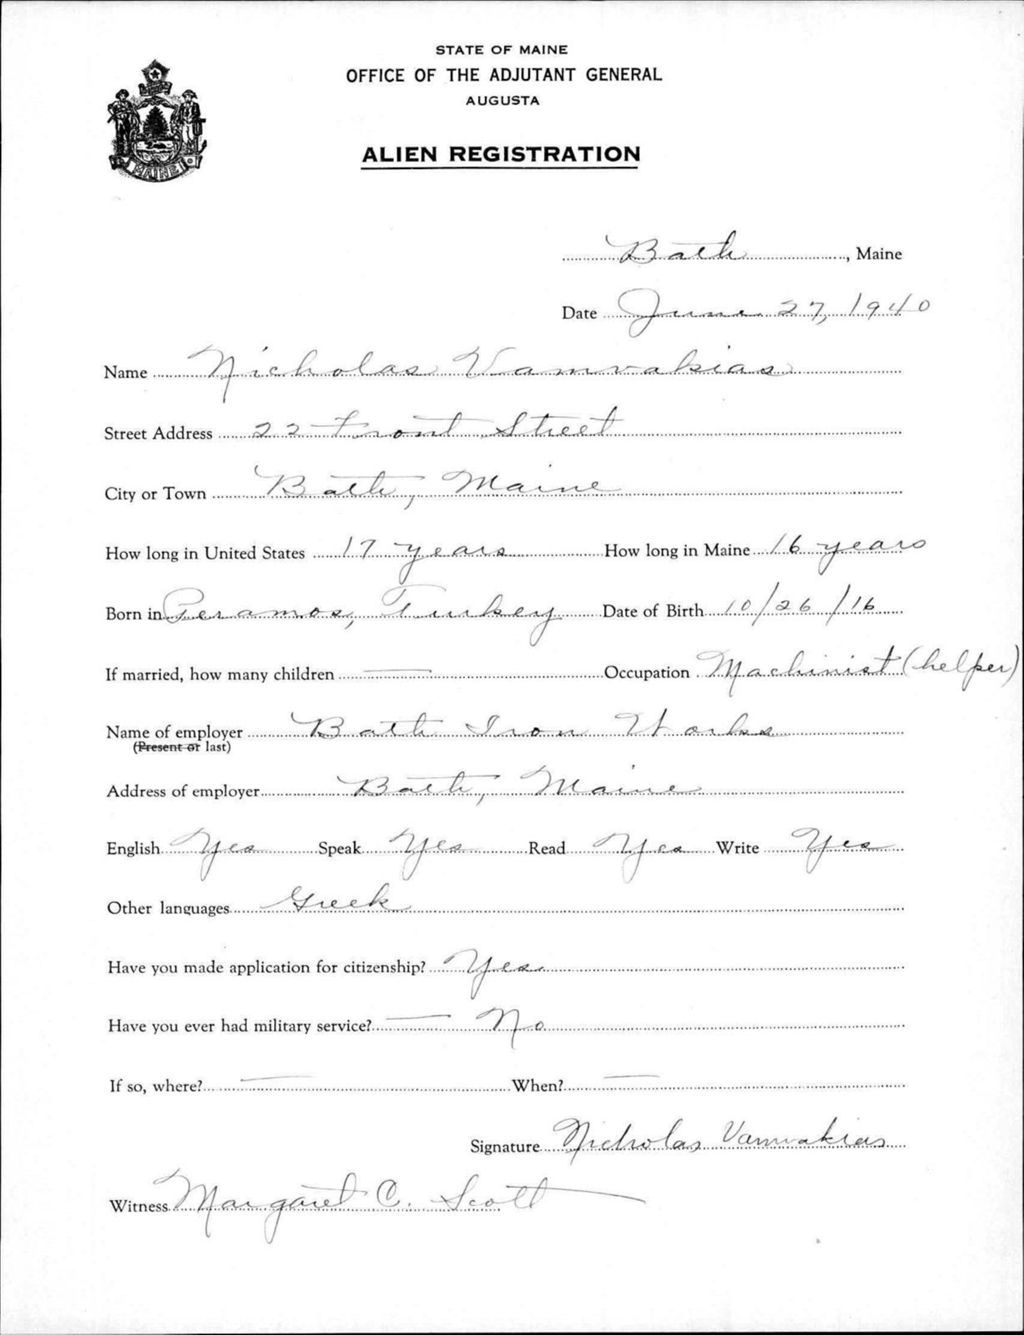 STATE OF MAINE
OFFICE OF THE ADJUTANT GENERAL
AUGUSTA
ALIEN REGISTRATION
MAINE
Bath, Maine
Date June 27, 1940
Name Nicholas Vamvakias
Street Address 22 Front Street
City or Town Bath, Maine
How long in United States 17 years How long in Maine 16 years
Born in Peramos, Turkey Date of Birth 10/26/16
If married, how many children — Occupation Machinist (helper)
Name of employer Bath Iron Works
(Present or last)
Address of employer Bath, Maine
English Yes Speak Yes Read Yes Write Yes
Other languages Greek
Have you made application for citizenship? Yes
Have you ever had military service? — No
If so, where? — When? —
Signature Nicholas Vamvakias
Witness Margaret C. Scott